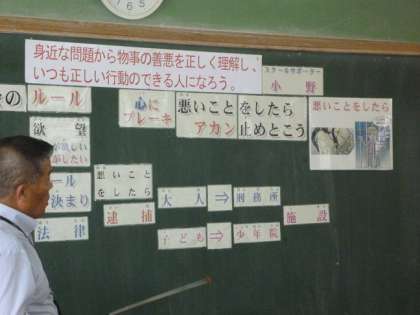 165
身近な問題から物事の善悪を正しく理解し、
いつも正しい行動のできる人になろう。
スクールサポーター
小野
の
ルール
心に
ブレーキ
悪いことをしたら
アカン 止めとこう
悪いことをしたら
欲望
がしたい
ール
決まり
法律
悪いこと
をしたら
逮捕
大人 ⇒ 刑務所
施設
子ども ⇒ 少年院